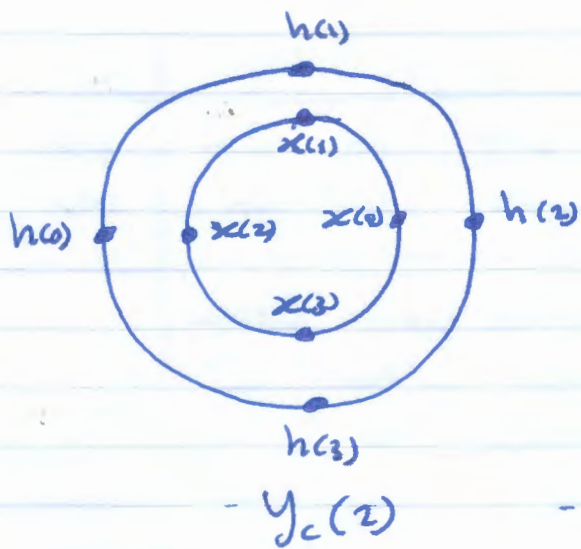 h(1)
x(1)
h(0) x(2) x(0) h(2)
x(3)
h(3)
- y_c(2) -